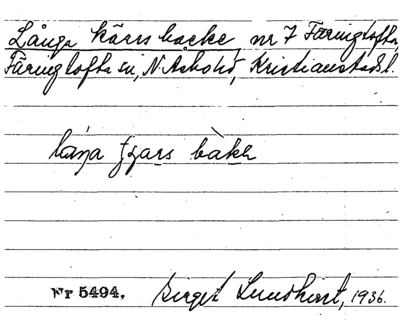 Långa kärrs backe nr 7 Färingtofta,
Färingtofta sn, N Åsbo hd, Kristianstads l.
båkk
Nr 5494. Birget Lundkvist, 1936.